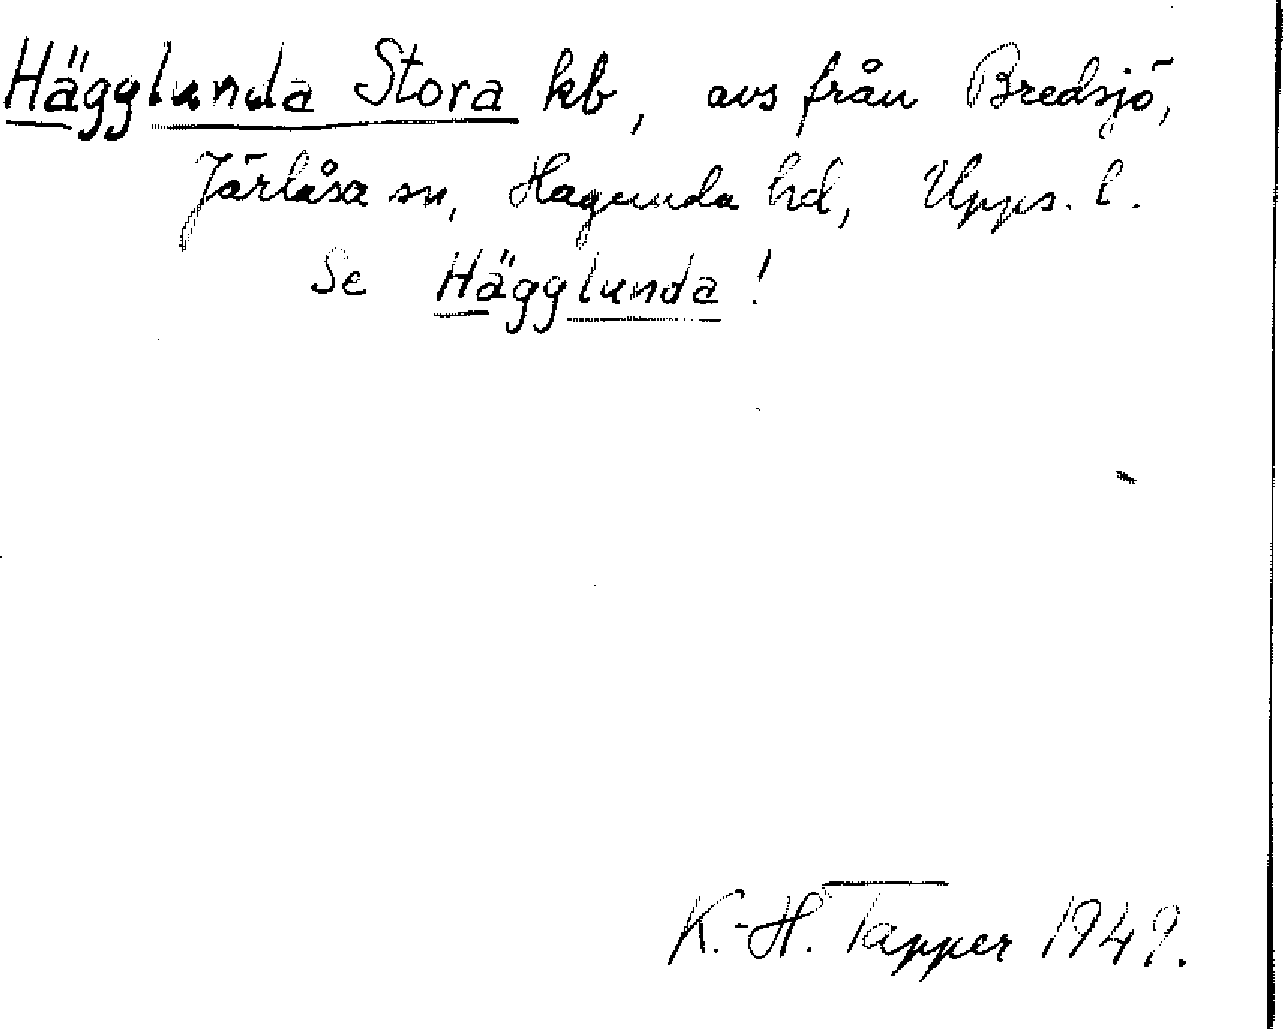 Hägglunda Stora kb, avs från Bredsjö,
Järlåsa sn, Hagunda hd, Upps. l.
Se Hägglunda!
K.-H. Tapper 1949.